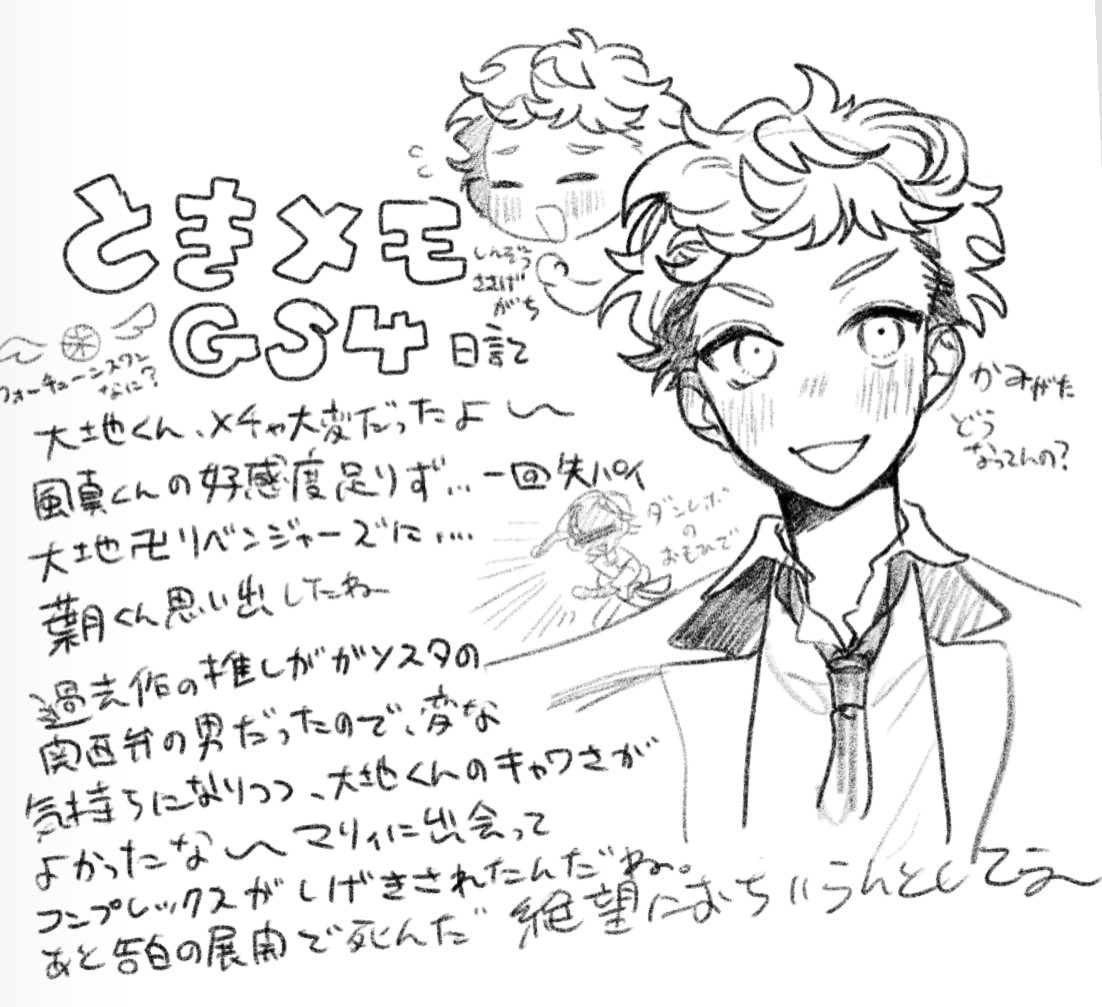 ときメモ
GS4 日記
しんぞう
ささげ
がち
フォーチューンスワン
なに?
かみがた
どう
なってんの?
大地くん、メチャ大変だったよ〜
風真くんの好感度足りず…一回失パイ
大地卍リベンジャーズに….
ダンレボ
の
おもひで
葉月くん思い出したね
過去作の推しがガソスタの
関西弁の男だったので、変な
気持ちになりつつ、大地くんのキャワさが
よかったな〜マリィに出会って
コンプレックスがしげきされたんだね。
あと告白の展開で死んだ
絶望におち
うんとしてる〜